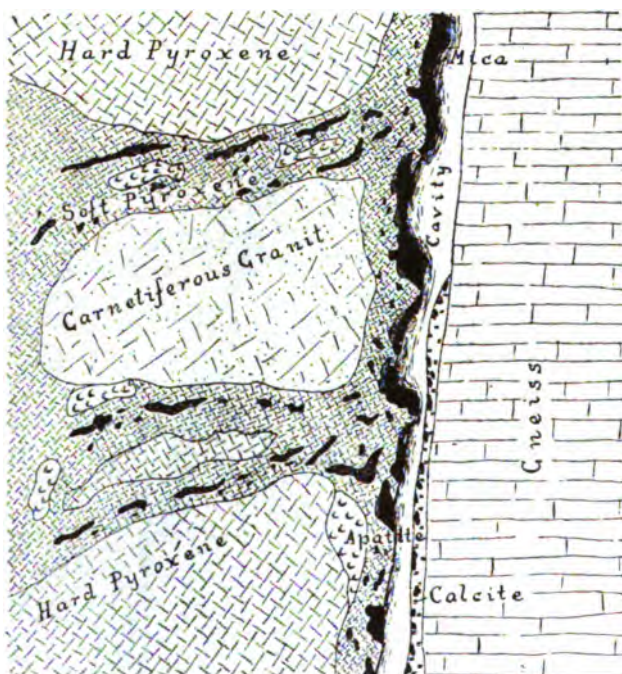 Hard Pyroxene
Mica
Soft Pyroxene
Cavity
Garnetiferous Granit
Gneiss
Apatite
Hard Pyroxene
Calcite